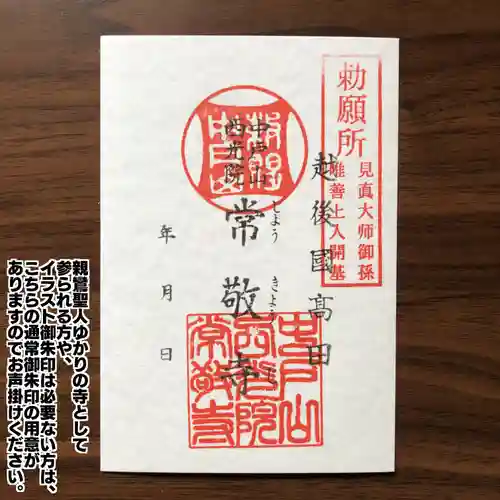 勅願所
見真大师御孫
唯善上人開基
越後國高田
中戸山
西光院
常敬寺
しよう
きよう
年 月 日
中戸山
西光院
常敬寺
親鸞聖人ゆかりの寺として
参られる方や、
イラスト御朱印は必要ない方は、
こちらの通常御朱印の用意が
ありますのでお声掛けください。